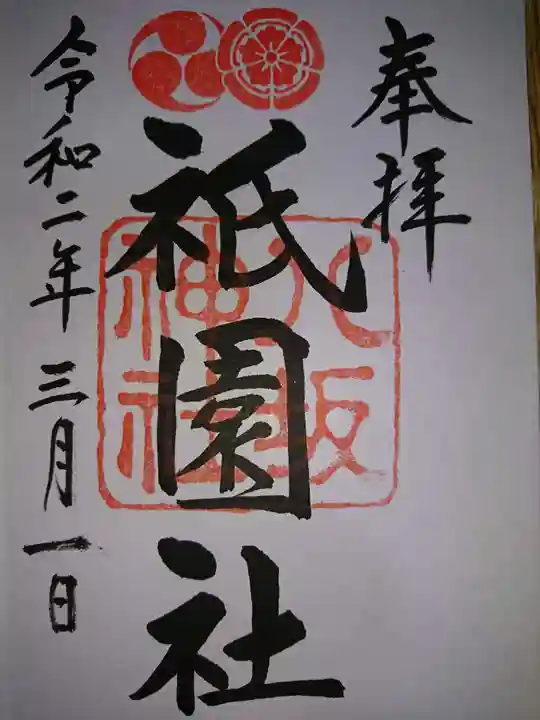 奉拝
八坂
神社
祇園社
令和二年三月一日